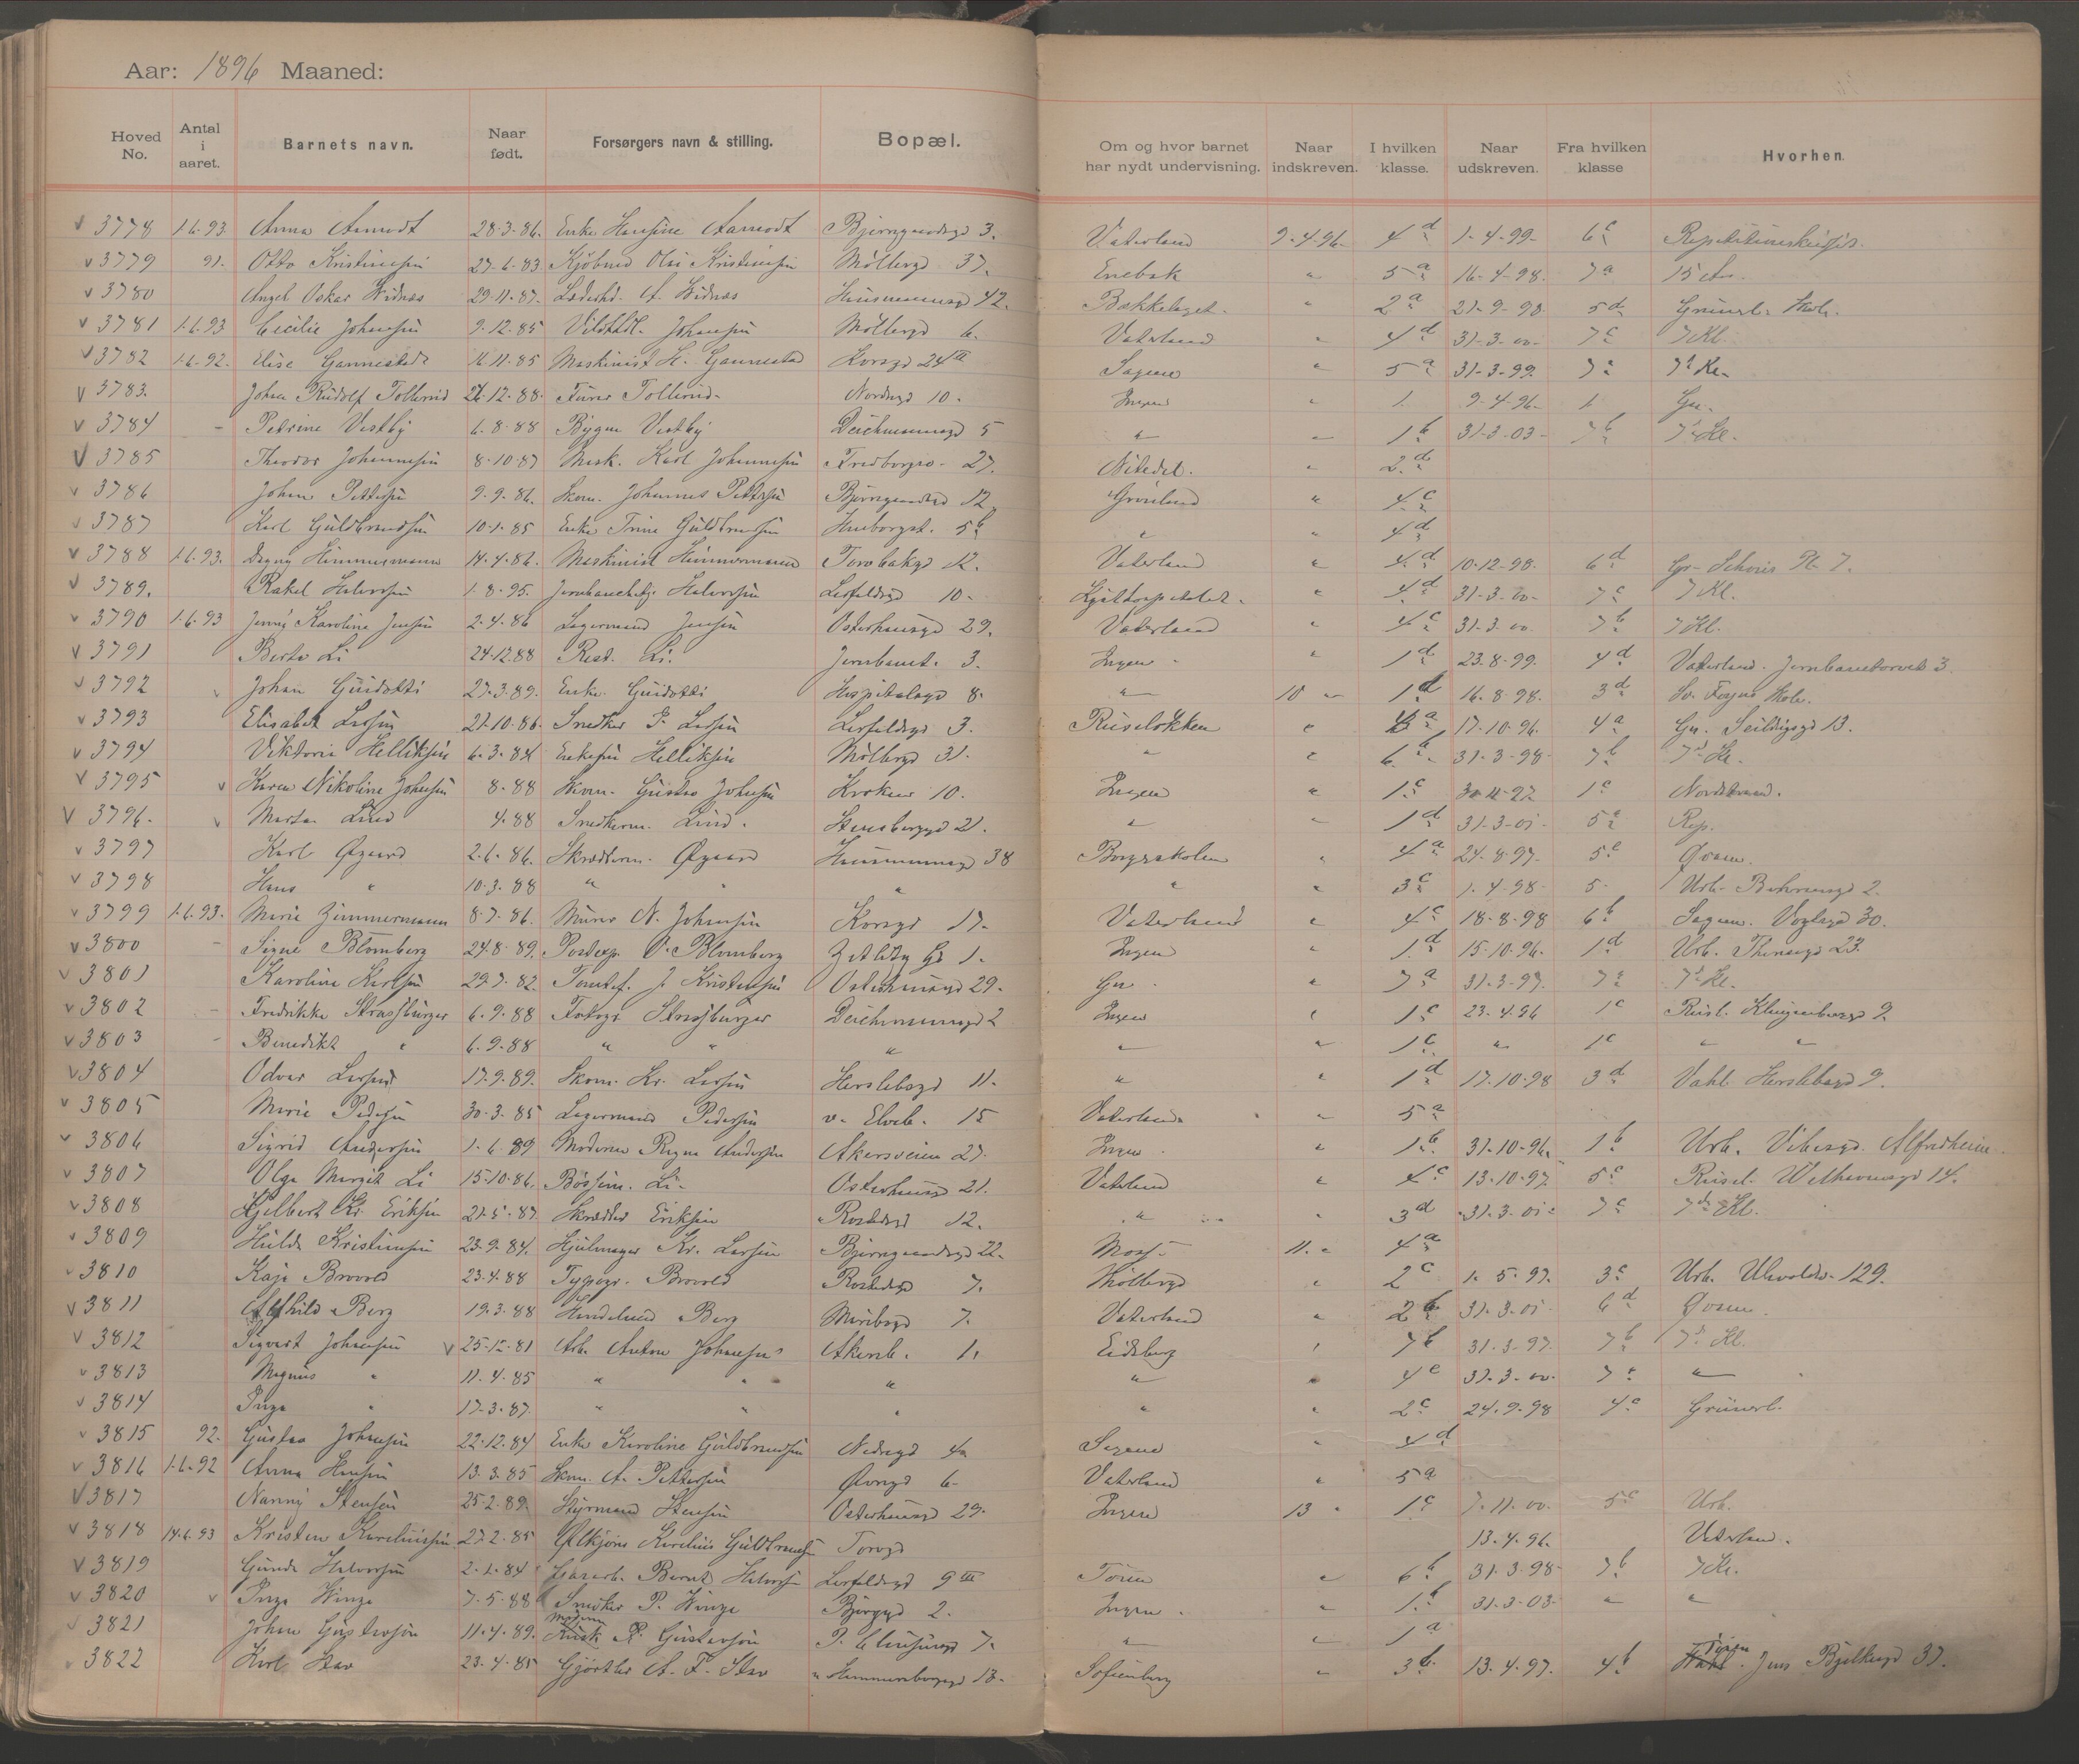 Aar: 1896 Maaned:
Hoved No. Antal i aaret. Barnets navn. Naar født. Forsørgers navn & stilling. Bopæl. Om og hvor barnet har nydt undervisning. Naar indskreven. I hvilken klasse. Naar udskreven. Fra hvilken klasse Hvorhen.
v 3778 1.6.93. Anna Aamodt 28.3.86. Enke Hansine Aamodt Bjerregaardsgd 3. Vaterland 9-4-96- 4 d 1-4-99- 6 c
v 3779 91. Otto Kristiansen 27.6.83 Kjøbmd Olsi Kristiansen Møllergd 37. Enebak " 5 a 16-4-98. 7 a 15 Aar.
v 3780 Oskar Widnæs 29.11.87. A. Widnæs Hausmannsgd 42. Bækkelaget. " 2 a 21-9-98 5 d Grünerl. Skole.
v 3781 1.6.93 Cecilie Johansen 9.12.85 Johansen Møllergd 6. Vaterland " 4 d 31-3-00- 7 c 7 Kl.
v 3782 1.6-92. Elise Gannestad 16.11.85 Maskinist H. Gannestad Korsgd 24 II Sagene " 5 a 31-3-99. 7 a 7d Kl-
v 3783. Johan Rudolf 26.12.88. Nordregd 10. Ingen " 1. 9-4-96- 1. Gr.
v 3784 - Petrine Vestby 6.8.88 Bygm Vestby Deichmannsgd 5 " " 1 b 31-3-03- 7 b 7d Kl.
v 3785 Theodor Johannesen 8.10.87 Mask. Karl Johannesen Fredborgv. 27. Nitedal. " 2. d
v 3786 Johan Pettersen 9.9.86. Skom. Johannes Pettersen Bjerregaardsgd 12 Grønland " 4. c
v 3787 Karl Guldbrandsen 10.1.85 Enke Trine Guldbrandsen 5 b " " 4 d
v 3788 1.6.93. Dagny Himmermann 14.4.86. Maskinist Himmermann Torvbakgd 12. Vaterland " 4. d 10-12-98. 6 d Gr- Schous Pl. 7.
v 3789. Rakel Halvorsen 1.8.95. Jernbanebetj. Halvorsen Leirfaldsgd 10- " 4. d 31-3-00- 7 c 7 Kl.
v 3790 1.6.93 Jenny Karoline Jensen 2.4.86 Lagermand Jensen Osterhausgd 29. Vaterland " 4 c 31-3-00. 7 b 7 Kl.
v 3791 Berta Li 24.12.88 Rest. Li. Jernbanet. 3. Ingen " 1 d 23.8-99. 4 d Vaterland. Jernbanetorvet 3.
v 3792 v Johan Guidotti 27.3.89. Enke. Guidotti Hospitalsgd 8. " 10 " 1 d 16-8-98. 3 d Sv. Foyns Skole.
v 3793 Elisabet Larsen 21.10.86. Snedker P. Larsen Leirfaldsgd 3. Ruseløkken " 4 a 17-10-96. 4 a Gr. Seildugsgd 13.
v 3794 Viktoria Helliksen 6.3.84 Enkefru Helliksen Møllergd 31. " " 6. b 31-3-98- 7 b 7d Kl.
v 3795 v Karen Nikoline Johnsen 8-88 Skom. Gustav Johnsen Kroken 10. Ingen " 1. c 30-11-97. 1 c Nordstrand.
v 3796. v Marta Lind 4.88 Snedkerm. Lind. Stensberggd 21. " " 1 d 31-3-01- 5 c Rep.
v 3797 Karl Øgaard 2.6.86. Skrædderm. Øgaard Hausmannsgd 38 Borgerskolen " 4 a 24-8-97- 5 c
v 3798 Hans " 10.3.88 " " " " " 3 c 1.4-98- 5- Urh. 2.
v 3799 1.6.93. Marie Zimmermann 8.7.86. Murer N. Johansen Korsgd 17. Vaterland " 4 c 18-8-98 6 b Sagene. Vogtsgd 30.
v 3800 - Signe Blomberg 24.8.89. Postexp. O. Blomberg 1. Ingen " 1. d 15-10-96. 1 d Urh. Theresesgd 23.
v 3801 Karoline Karlsen 29.7.82. J. Kristensen Osterhausgd 29. Gr. " 7 a 31-3-97. 7 a 7d Kl.
v 3802 - Fredrikke Strassburger 6.9.88 Fotogr Strassburger Deichmannsgd 2 Ingen " 1 c 23-4-96 1 c Rusl. Klingenberggd 9.
v 3803 - Benedikt " 6.9.88 " " " " " 1 c. " 1 c " "
v 3804 Odvar Larsen 17.9.89. Skom. Kr. Larsen Herslebsgd 11. " " 1 d 17.10-98 3 d Vahl. Herslebsgd 9.
v 3805 Marie Pedersen 30.3.85 Lagermand Pedersen v. Elveb. 15 Vaterland. " 5 a
v 3806 Sigrid Andersen 1.6.89 Moderen Ragna Andersen Akersveien 27. Ingen. " 1. b. 31-10-96. 1 b Urh. Vibesgd. Alfredheim.
v 3807 Olga Margit Li 15.10.86. Bøssem. Li. Osterhausgd 21. Vaterland " 4 c 13-10-97. 5 c Rusel. Welhavensgd 14.
v 3808 Hjelbert Kr. Eriksen 21.5.87 Skrædder Eriksen Rostedsgd 12. " " 3 d 31-3-01- 7 c 7de Kl.
v 3809 Hulda Kristiansen 23.9.84. Hjulmager Kr. Larsen Bjerregaardsgd 22. Moss- 11. " 4 a
v 3810 Kaja Brovold 23.4.88 Typogr. Brovold Rostedsgd 7. Møllergd " 2 c 1-5-97. 3 c Urh. Ullevoldsv. 129.
v 3811 Berg 19.3.88 Handelsmd Berg Maribogd 7. Vaterland " 2 b 31-3-01- 6 d
v 3812 Sigvart Johansen v 25.12.81 Arb. Anton Johansen Akersb. 1. Eidsberg " 7 b 31-3-97. 7 b 7d Kl.
v 3813 Magnus " 11.4.85 " " " " " 4 c 31-3-00- 7 c "
v 3814 Inga " 17.3.87. " " " " " 2 c 24-9-98 4 c Grünerl.
v 3815 92. Gustav Johansen 22.12.84 Enke Karoline Guldbrandsen Nedregd 4a Sagene " 4 d
v 3816 1.6.92 Anna Hansen 13.3.85 Skom. A. Pettersen Øvregd 6- Vaterland " 5 a
v 3817 Nanny Stensen 25.2.89. Styrmand Stensen Osterhausgd 29. Ingen 13 " 1 c 7-11-00. 5 c Urh.
v 3818 14.6.93 Kristian Kareliussen 27.2.85 Karelius Guldbrandsen Torvgd 13.4.96. Vaterland.
v 3819 Gunda Halvorsen 2.1.84 Bernt Halvorsen Leirfaldsgd 9 III Tøien " 6 b 31.3-98- 7 b 7 Kl.
v 3820 v Inga Winge 7.5.88 Snedker P. Winge Bjergd 2. Ingen. " 1. b 31-3-03- " "
v 3821 Johan Gustavson 11.4.89. moderen Kusk R. Gustavson P. Clausensgd 7. " " 1 a
v 3822 Karl Stav 23.4.85 Gjørtler A. F. Stav 13. Sofienberg " 3 b 13.4.97. 4 b Tøien. Jens Bjelkesgd 37.